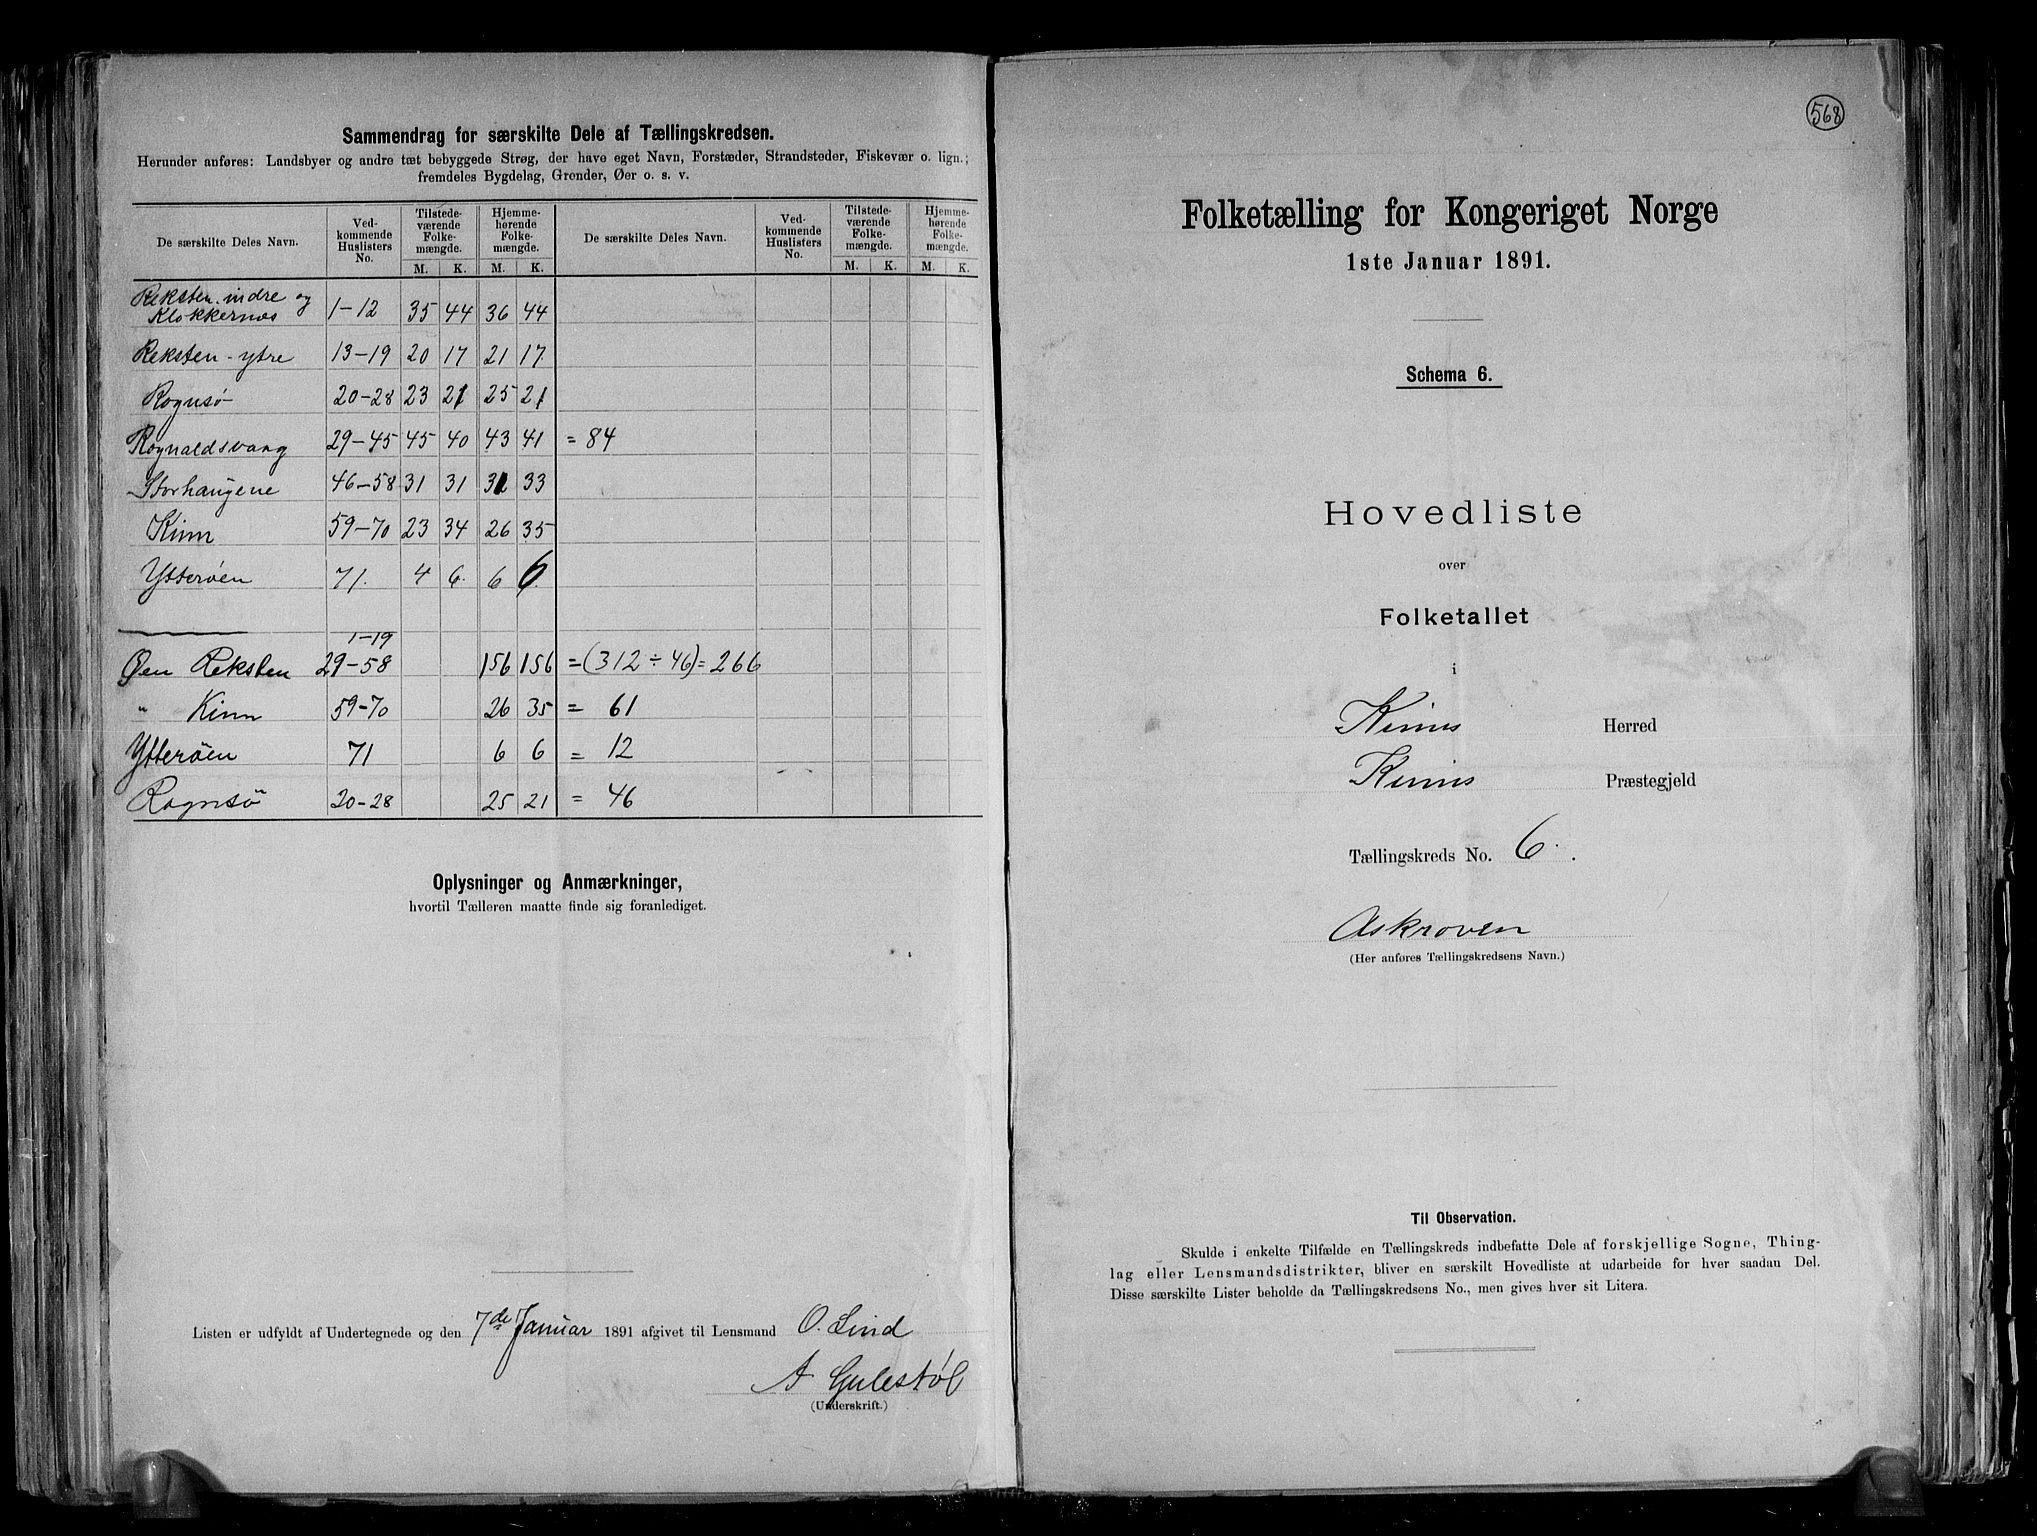 Sammendrag for særskilte Dele af Tællingskredsen.
Herunder anføres: Landsbyer og andre tæt bebyggede Strøg, der have eget Navn, Forstæder, Strandsteder, Fiskevær o. lign.;
fremdeles Bygdelag, Grender, Øer o. s. v.
De særskilte Deles Navn. Vedkommende Huslisters No. Tilstedeværende Folkemængde. M. K. Hjemmehørende Folkemængde. M. K. De særskilte Deles Navn. Vedkommende Huslisters No. Tilstedeværende Folkemængde. M. K. Hjemmehørende Folkemængde. M. K.
Reksten indre og
Klokkernes 1-12 35 44 36 44
Reksten-ytre 13-19 20 17 21 17
Rognsø 20-28 23 21 25 21
Rognaldsvaag 29-45 45 40 43 41 = 84
Storhaugene 46-58 31 31 31 33
Kinn 59-70 23 34 26 35
Ytterøen 71. 4 6 6 6
1-19
Øen Reksten 29-58 156 156 = (312 ÷ 46) = 266
" Kinn 59-70 26 35 = 61
Ytterøen 71 6 6 = 12
Rognsø 20-28 25 21 = 46
Oplysninger og Anmærkninger,
hvortil Tælleren maatte finde sig foranlediget.
Listen er udfyldt af Undertegnede og den 7de Januar 1891 afgivet til Lensmand O. Lind
A Gulestøl
(Underskrift.)
568
Folketælling for Kongeriget Norge
1ste Januar 1891.
Schema 6.
Hovedliste
over
Folketallet
i
Kinns Herred
Kinns Præstegjeld
Tællingskreds No. 6.
Askroven
(Her anføres Tællingskredsens Navn.)
Til Observation.
Skulde i enkelte Tilfælde en Tællingskreds indbefatte Dele af forskjellige Sogne, Thing-
lag eller Lensmandsdistrikter, bliver en særskilt Hovedliste at udarbeide for hver saadan Del.
Disse særskilte Lister beholde da Tællingskredsens No., men gives hver sit Litera.